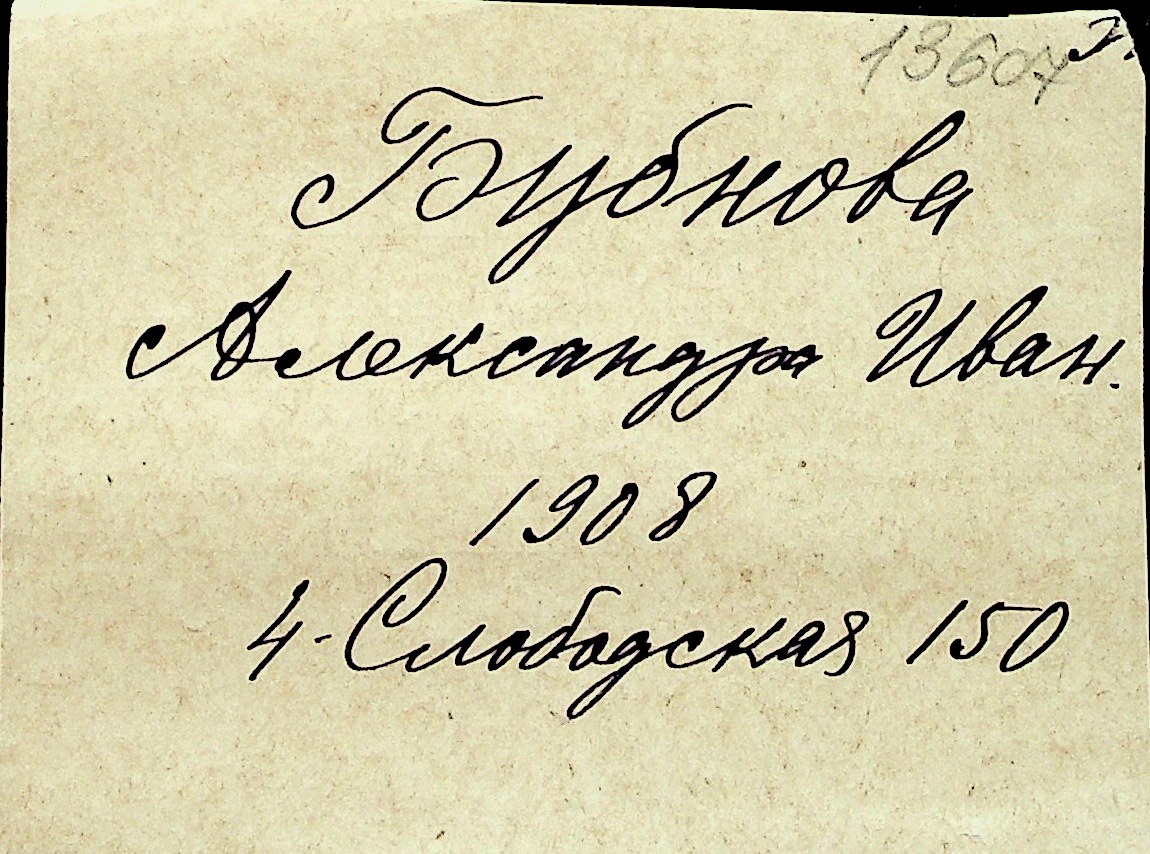 13607
Бубнова
Александра Иван.
1908
4-Слободская 150